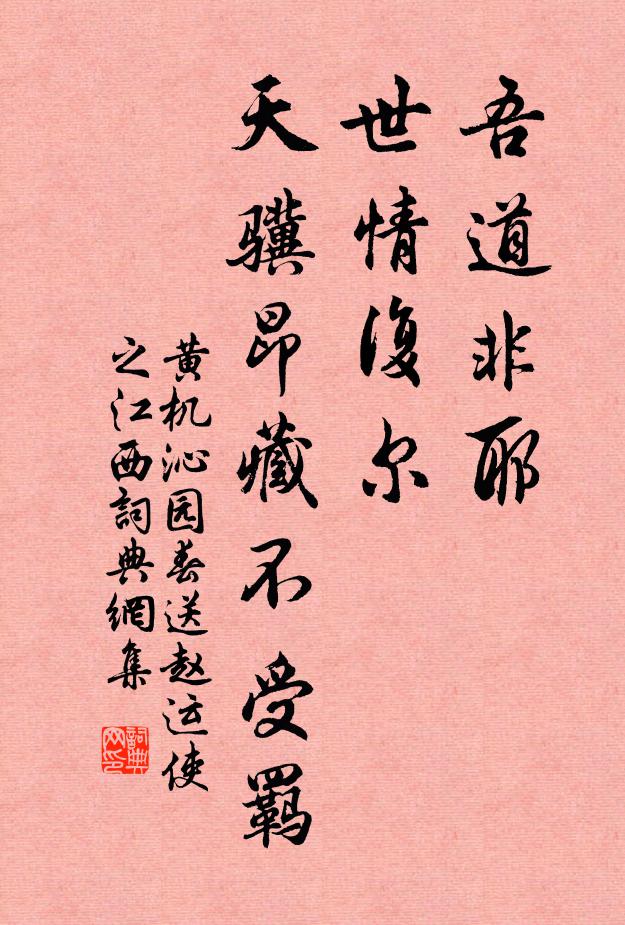 吾道非耶
世情復尔
天驥昂藏不受羈
黄机沁园春送赵运使
之江西詞典網集
詞典
网印